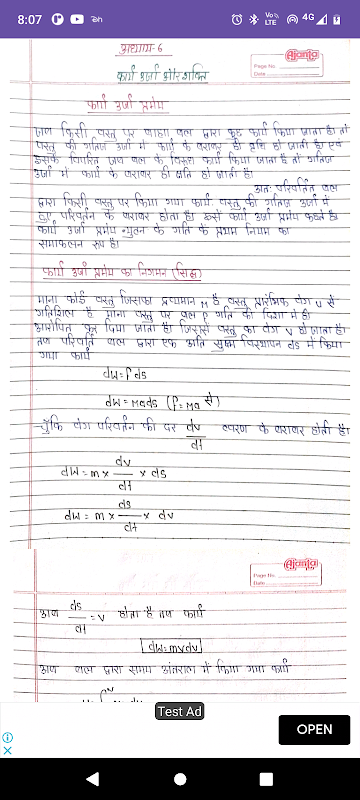 8:07
Vo))
LTE
4G
अध्याय-6
Ajanta
Page No.
Date
कार्य ऊर्जा और शक्ति
कार्य ऊर्जा प्रमेय
जब किसी वस्तु पर बाह्य बल द्वारा कुछ कार्य किया जाता है तो
वस्तु की गतिज ऊर्जा में कार्य के बराबर ही वृद्धि हो जाती है। एवं
इसके विपरित जब बल के विरुद्ध कार्य किया जाता है तो गतिज
ऊर्जा में कार्य के बराबर ही क्षति हो जाती है।
अतः परिवर्तित बल
द्वारा किसी वस्तु पर किया गया कार्य वस्तु की गतिज ऊर्जा में
हुए परिवर्तन के बराबर होता है। इसे कार्य ऊर्जा प्रमेय कहते है।
कार्य ऊर्जा प्रमेय न्यूटन के गति के प्रथम नियम का
समाकलन रूप है।
कार्य ऊर्जा प्रमेय का निगमन (सिद्ध)
माना कोई वस्तु जिसका द्रव्यमान M है वस्तु प्रारंभिक वेग u से
गतिशिल है माना वस्तु पर बल F गति की दिशा में ही
आरोपित कर दिया जाता है। जिससे वस्तु का वेग v हो जाता है।
तब परिवर्ति बल द्वारा एक अति सूक्ष्म विस्थापन ds में किया
गया कार्य
dw = F ds
dw = mads (F = Ma से)
चूँकि वेग परिवर्तन की दर dv/dt त्वरण के बराबर होती है।
dw = m × dv/dt × ds
dw = m × ds/dt × dv
Ajanta
Page No.
Date
अब ds/dt = v होता है तब कार्य
dw = mvdv
अब बल द्वारा समय अंतराल में किया गया कार्य
Test Ad
OPEN